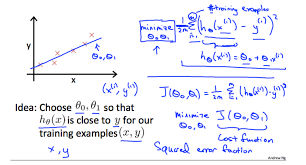 y
x
θ₀, θ₁
(x⁽ⁱ⁾, y⁽ⁱ⁾)
Idea: Choose θ₀, θ₁ so that
hθ(x) is close to y for our
training examples (x, y)
x, y
#training examples
minimize
θ₀, θ₁
1/2m Σ (hθ(x⁽ⁱ⁾) - y⁽ⁱ⁾)²
hθ(x⁽ⁱ⁾) = θ₀ + θ₁x⁽ⁱ⁾
J(θ₀, θ₁) = 1/2m Σ (hθ(x⁽ⁱ⁾) - y⁽ⁱ⁾)²
minimize J(θ₀, θ₁)
θ₀, θ₁
Cost function
Squared error function
Andrew Ng